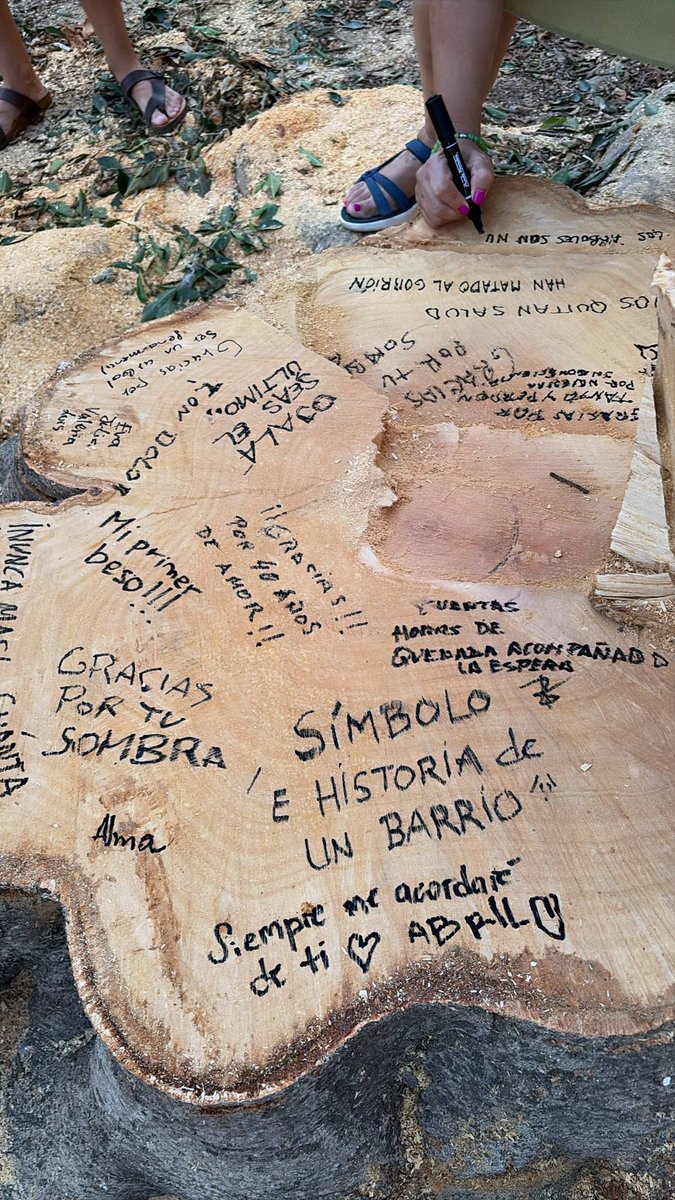 LOS ÁRBOLES SON NU
HAN MATADO AL GORRIÓN
IOS QUITAN SALUD
GRACIAS
POR TU
SOMB
GRACIAS POR
TANTO Y PERDÓN
POR NUESTRA
INCONSCIENCIA
Gracias por ser
un árbol
fenomenal
Eva
Valeria
OJALÁ
SEAS EL
ÚLTIMO..
CON DOLOR
Mi primer
beso!!!
¡¡GRACIAS!!!
POR 40 AÑOS
DE AMOR!!
CUANTAS
HORAS DE
QUEDADA ACOMPAÑADO
LA ESPERA
¡NUNCA MAS!
GRACIAS
POR TU
SOMBRA
SÍMBOLO
E HISTORIA de
UN BARRIO
Alma
Siempre me acordaré
de ti ♡ ABRIL ♡